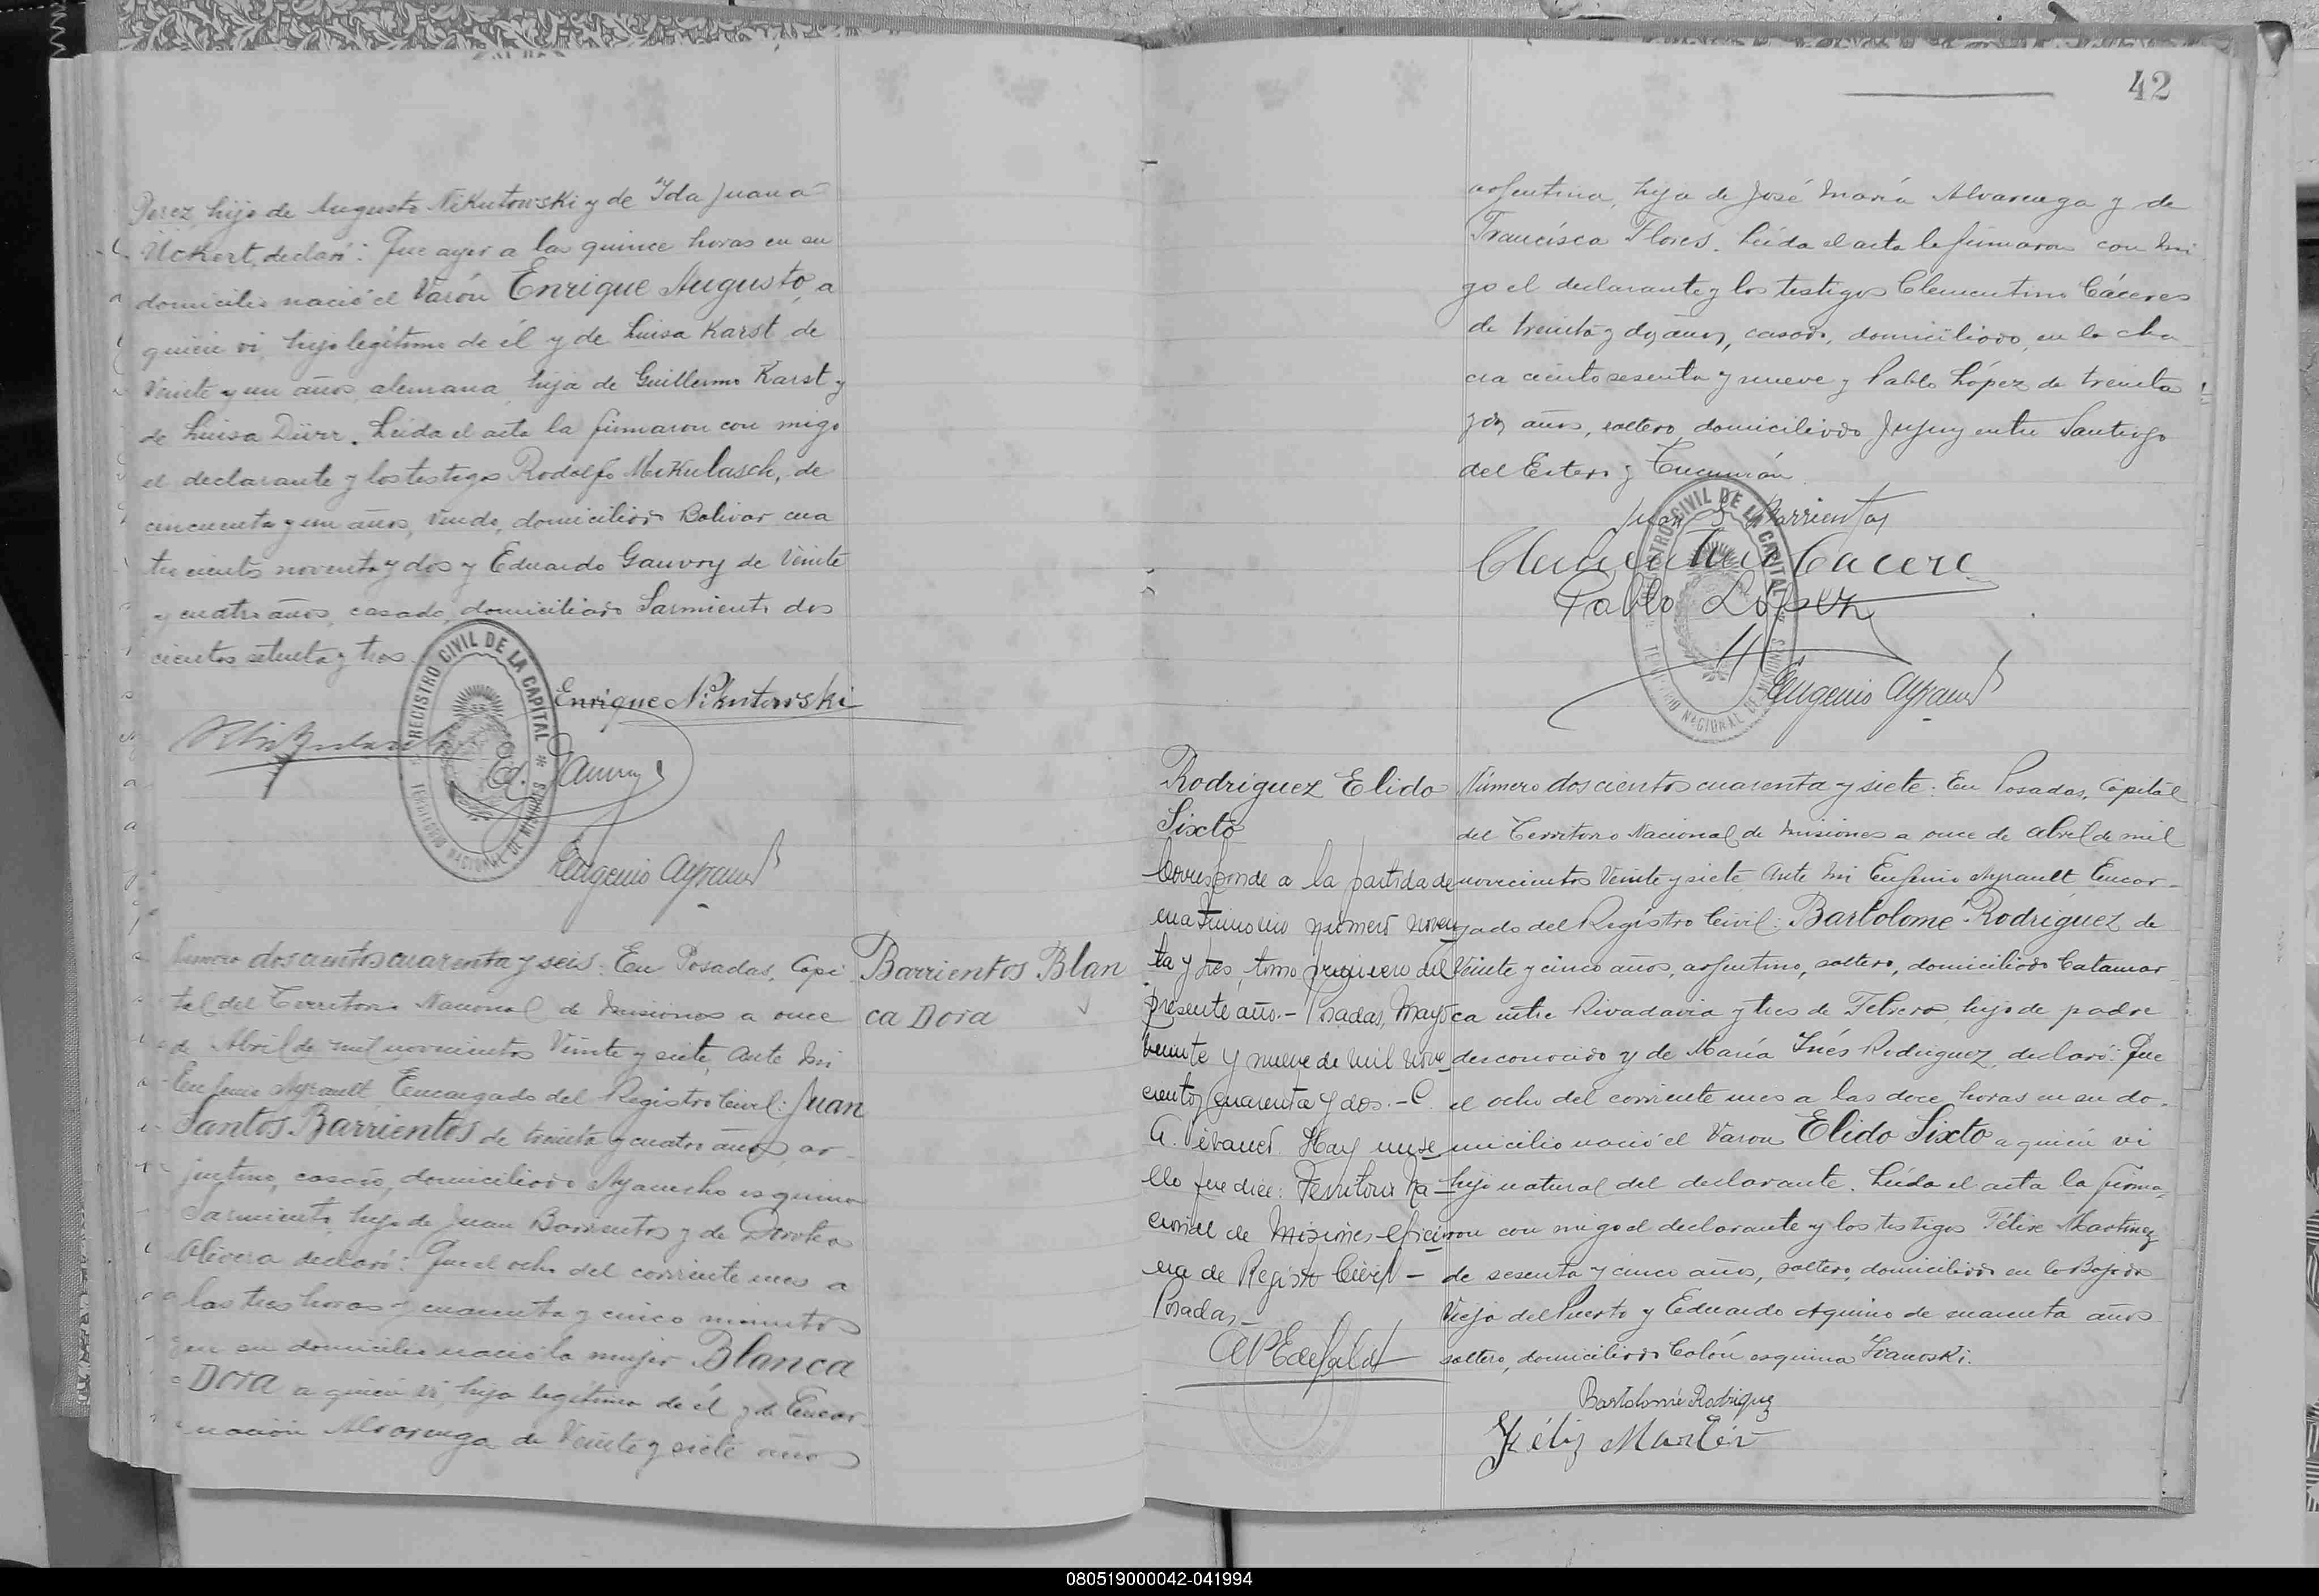 Perez, hijo de Augusto Nikutowski y de Ida Juana
Uckert, declaró: Que ayer a las quince horas en su
domicilio nació el Varón Enrique Augusto, a
quien vi, hijo legítimo de él y de Luisa Karst, de
Veinte y un años, alemana, hija de Guillermo Karst y
de Luisa Dürr. Leída el acta la firmaron con migo
el declarante y los testigos Rodolfo Mikulasch, de
cincuenta y un años, Viudo, domiciliado Bolivar cua
trocientos noventa y dos y Eduardo Gauvry de Veinte
y cuatro años, casado, domiciliado Sarmiento dos
cientos setenta y tres.
REGISTRO CIVIL DE LA CAPITAL
TERRITORIO NACIONAL DE MISIONES
Enrique Nikutowski
Ed. Gauvry
Eugenio Ayrault
Barrientos Blan
ca Dora
Número doscientos cuarenta y seis: En Posadas, Capi
tal del Territorio Nacional de Misiones a once
de Abril de mil novecientos Veinte y siete, Ante mi
Eugenio Ayrault, Encargado del Registro Civil: Juan
Santos Barrientos de treinta y cuatro años, ar-
jentino, casado, domiciliado Ayacucho esquina
Sarmiento, hijo de Juan Barrientos y de Dorotea
Olivera declaró: Que el ocho del corriente mes a
las tres horas y cuarenta y cinco minutos
en su domicilio nació la mujer Blanca
Dora a quien vi, hija legítima de él y de Encar-
nación Alvarenga de Veinte y siete años
42
argentina, hija de José María Alvarenga y de
Francisca Flores. Leída el acta la firmaron con mi
go el declarante y los testigos Clementino Cáceres
de treinta y dos años, casado, domiciliado en la cha
cra ciento sesenta y nueve y Pablo López, de treinta
y dos años, soltero, domiciliado Jujuy entre Santiago
del Estero y Tucumán.
Juan S Barrientos
Clementino Cacere
Pablo López
REGISTRO CIVIL DE LA CAPITAL
TERRITORIO NACIONAL DE MISIONES
Eugenio Ayrault
Rodriguez Elido
Sixto
Corresponde a la partida de
matrimonio número noven
ta y tres, tomo primero del
presente año.- Posadas, Mayo
veinte y nueve de mil nove
cientos cuarenta y dos.- C.
A. Hay un se
llo que dice: Territorio Na-
cional de Misiones - Ofici
na de Registo Civil -
Posadas -
Número doscientos cuarenta y siete: En Posadas, Capital
del Territorio Nacional de Misiones a once de Abril de mil
novecientos Veinte y siete, Ante mi Eugenio Ayrault, Encar-
gado del Registro Civil: Bartolomé Rodríguez de
Veinte y cinco años, argentino, soltero, domiciliado Catamar
ca entre Rivadavia y tres de Febrero, hijo de padre
desconocido y de María Inés Rodriguez, declaró: Que
el ocho del corriente mes a las doce horas en su do-
micilio nació el Varon Elido Sixto a quien vi
hijo natural del declarante. Leída el acta la firma-
ron con migo el declarante y los testigos Félix Martinez
de sesenta y cinco años, soltero, domiciliado en la Bajada
Vieja del Puerto y Eduardo Aquino de cuarenta años
soltero, domiciliado Colón esquina Ivanoski.
Bartolomé Rodriguez
Féliz Martín
080519000042-041994